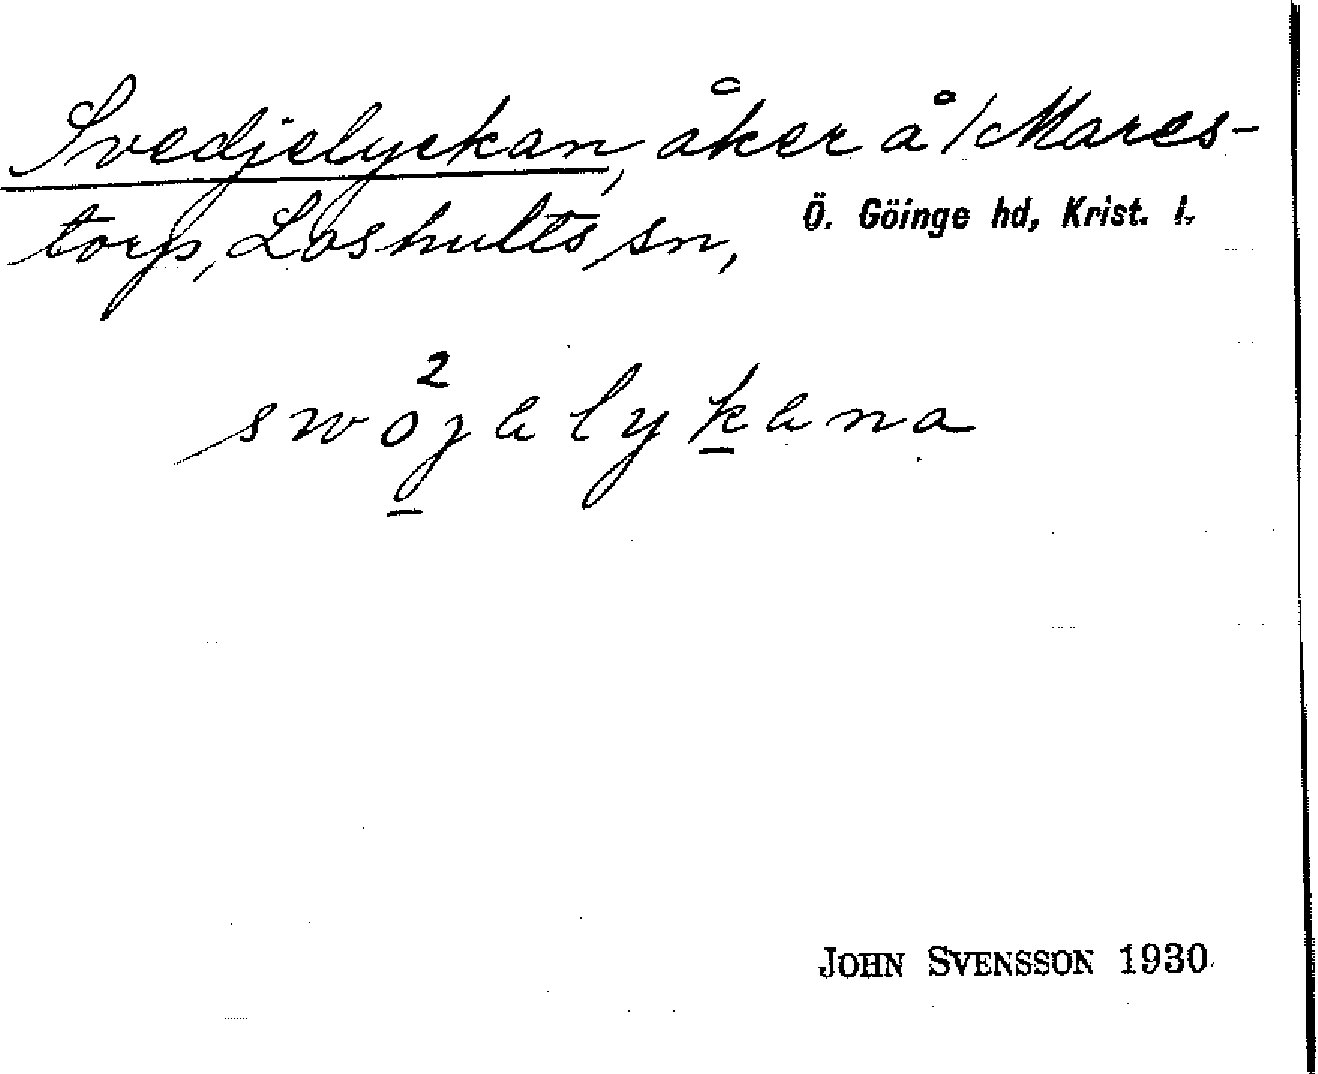 Svedjelyckan, åker å Mares-
torp, Loshults sn, Ö. Göinge hd, Krist. l.
JOHN SVENSSON 1930